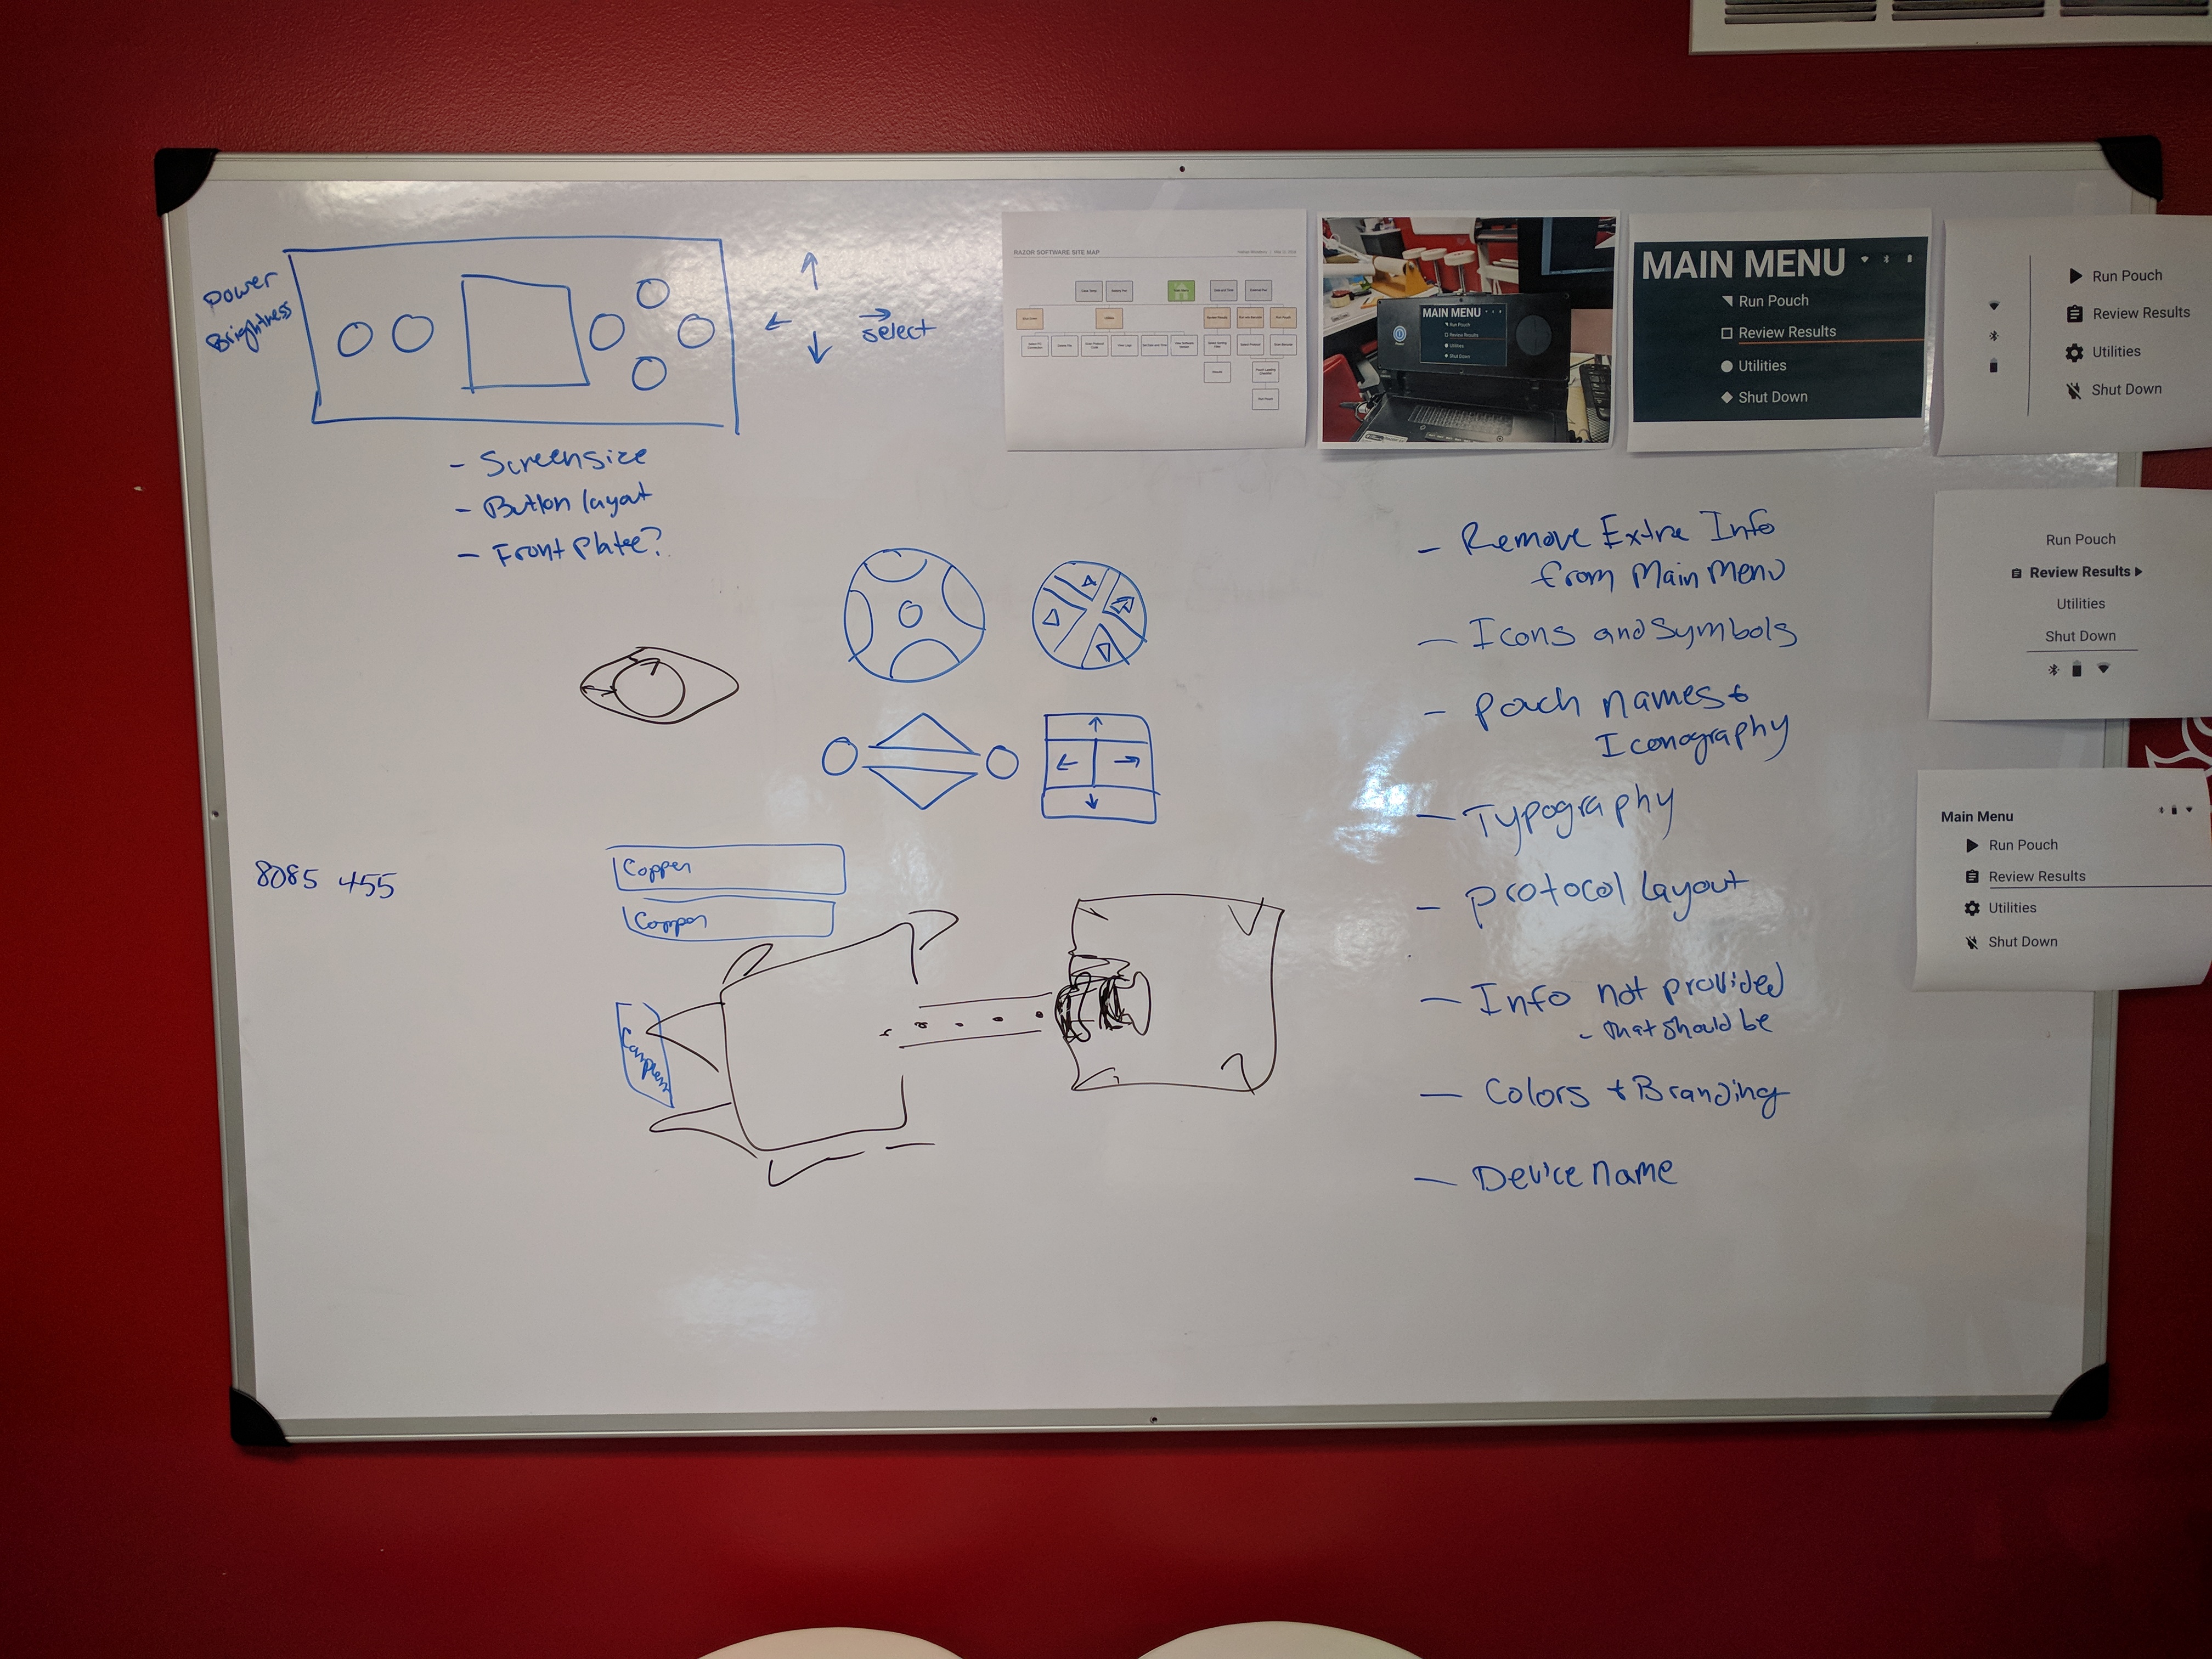 Power
Brightness
select
- Screensize
- Button layout
- Front Plate?
RAZOR SOFTWARE SITE MAP
Main Menu
Utilities
Review Results
Run Pouch
Delete File
View Logs
Set Date and Time
Results
Run Pouch
MAIN MENU
Run Pouch
Review Results
Utilities
Shut Down
MAIN MENU
Run Pouch
Review Results
Utilities
Shut Down
Run Pouch
Review Results
Utilities
Shut Down
Run Pouch
Review Results
Utilities
Shut Down
Main Menu
Run Pouch
Review Results
Utilities
Shut Down
- Remove Extra Info
from Main Menu
- Icons and Symbols
- Pouch names &
Iconography
- Typography
- Protocol layout
- Info not provided
- that should be
- Colors + Branding
- Device name
8085 455
Copper
Copper